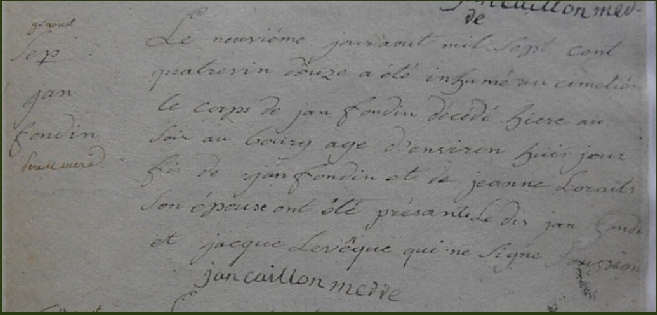 jan caillon med
de
9 aout
Sep
jan
fondin
Le neuviéme jour aout mil Sept cent
quatrevin douze a été inhumé au cimetiere
le corps de jan fondin décédé hiere au
Soir au bourg age d'environ huis jour
fis de jan fondin et de jeanne
Son épouse ont été présant le dis jan fondi
et jacque Levêque qui ne Signe
jan caillon merre